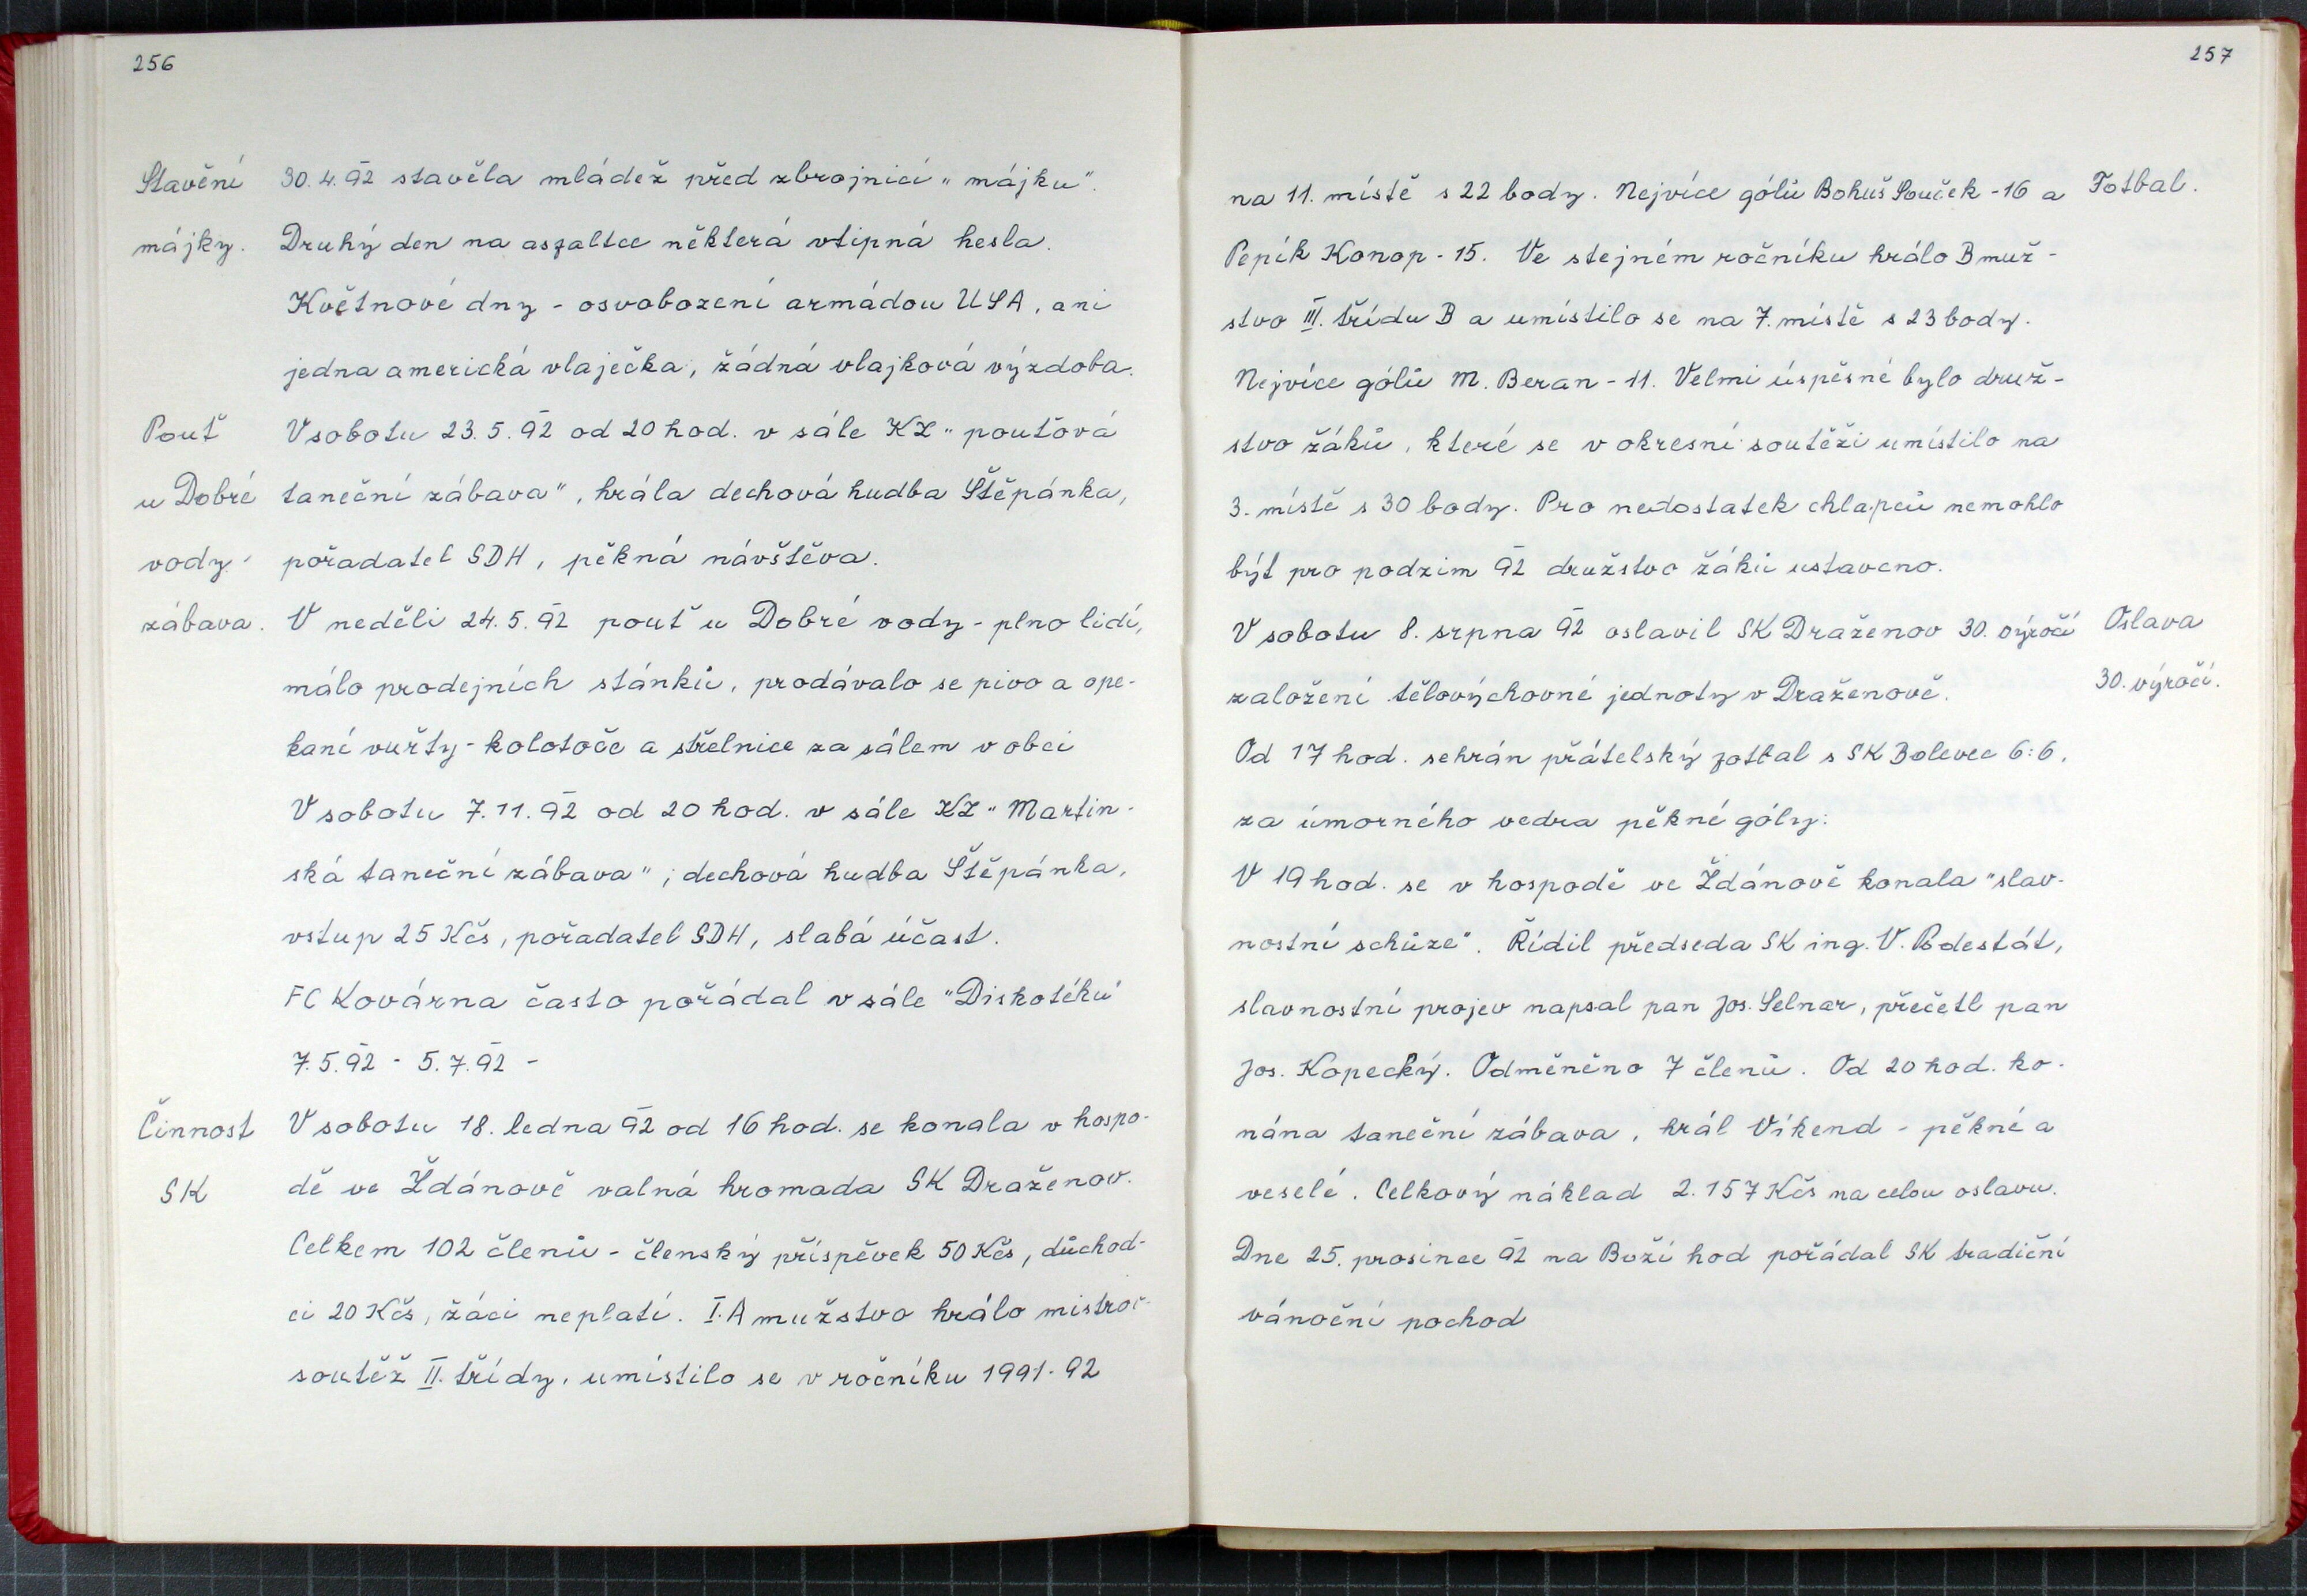 256
Stavění
májky.
30.4.92 stavěla mládež před zbrojnicí „májku".
Druhý den na asfaltce některá vtipná hesla.
Květnové dny - osvobození armádou USA, ani
jedna americká vlaječka, žádná vlajková výzdoba.
Pouť
u Dobré
vody
zábava.
V sobotu 23.5.92 od 20 hod. v sále KZ „pouťová
taneční zábava", hrála dechová hudba Štěpánka,
pořadatel SDH, pěkná návštěva.
V neděli 24.5.92 pouť u Dobré vody - plno lidí,
málo prodejních stánků, prodávalo se pivo a ope-
kaní vuřty - kolotoče a střelnice za sálem v obci
V sobotu 7.11.92 od 20 hod. v sále KZ „Martin-
ská taneční zábava", dechová hudba Štěpánka,
vstup 25 Kčs, pořadatel SDH, slabá účast.
FC Kovárna často pořádal v sále "Diskotéku"
7.5.92 - 5.7.92 -
Činnost
SK
V sobotu 18. ledna 92 od 16 hod. se konala v hospo-
dě ve Ždánově valná hromada SK Draženov.
Celkem 102 členů - členský příspěvek 50 Kčs, důchod-
ci 20 Kčs, žáci neplatí. I. A mužstvo hrálo mistrov-
soutěž II. třídy, umístilo se v ročníku 1991-92
257
na 11. místě s 22 body. Nejvíce gólů Bohuš Souček - 16 a
Fotbal.
Pepík Konop - 15. Ve stejném ročníku hrálo B muž-
stvo III. třídu B a umístilo se na 7. místě s 23 body.
Nejvíce gólů M. Beran - 11. Velmi úspěsné bylo druž-
stvo žáků, které se v okresní soutěži umístilo na
3. místě s 30 body. Pro nedostatek chlapců nemohlo
být pro podzim 92 družstvo žáků ustaveno.
V sobotu 8. srpna 92 oslavil SK Draženov 30. výročí
Oslava
30. výročí.
založení tělovýchovné jednoty v Draženově.
Od 17 hod. sehrán přátelský fotbal s SK Bolevec 6:6,
za úmorného vedra pěkné góly.
V 19 hod. se v hospodě ve Ždánově konala "slav-
nostní schůze". Řídil předseda SK ing. V. Podestát,
slavnostní projev napsal pan Jos. Selnar, přečetl pan
Jos. Kopecký. Odměněno 7 členů. Od 20 hod. ko-
nána taneční zábava, hrál Víkend - pěkné a
veselé. Celkový náklad 2.157 Kčs na celou oslavu.
Dne 25. prosince 92 na Boží hod pořádal SK tradiční
vánoční pochod